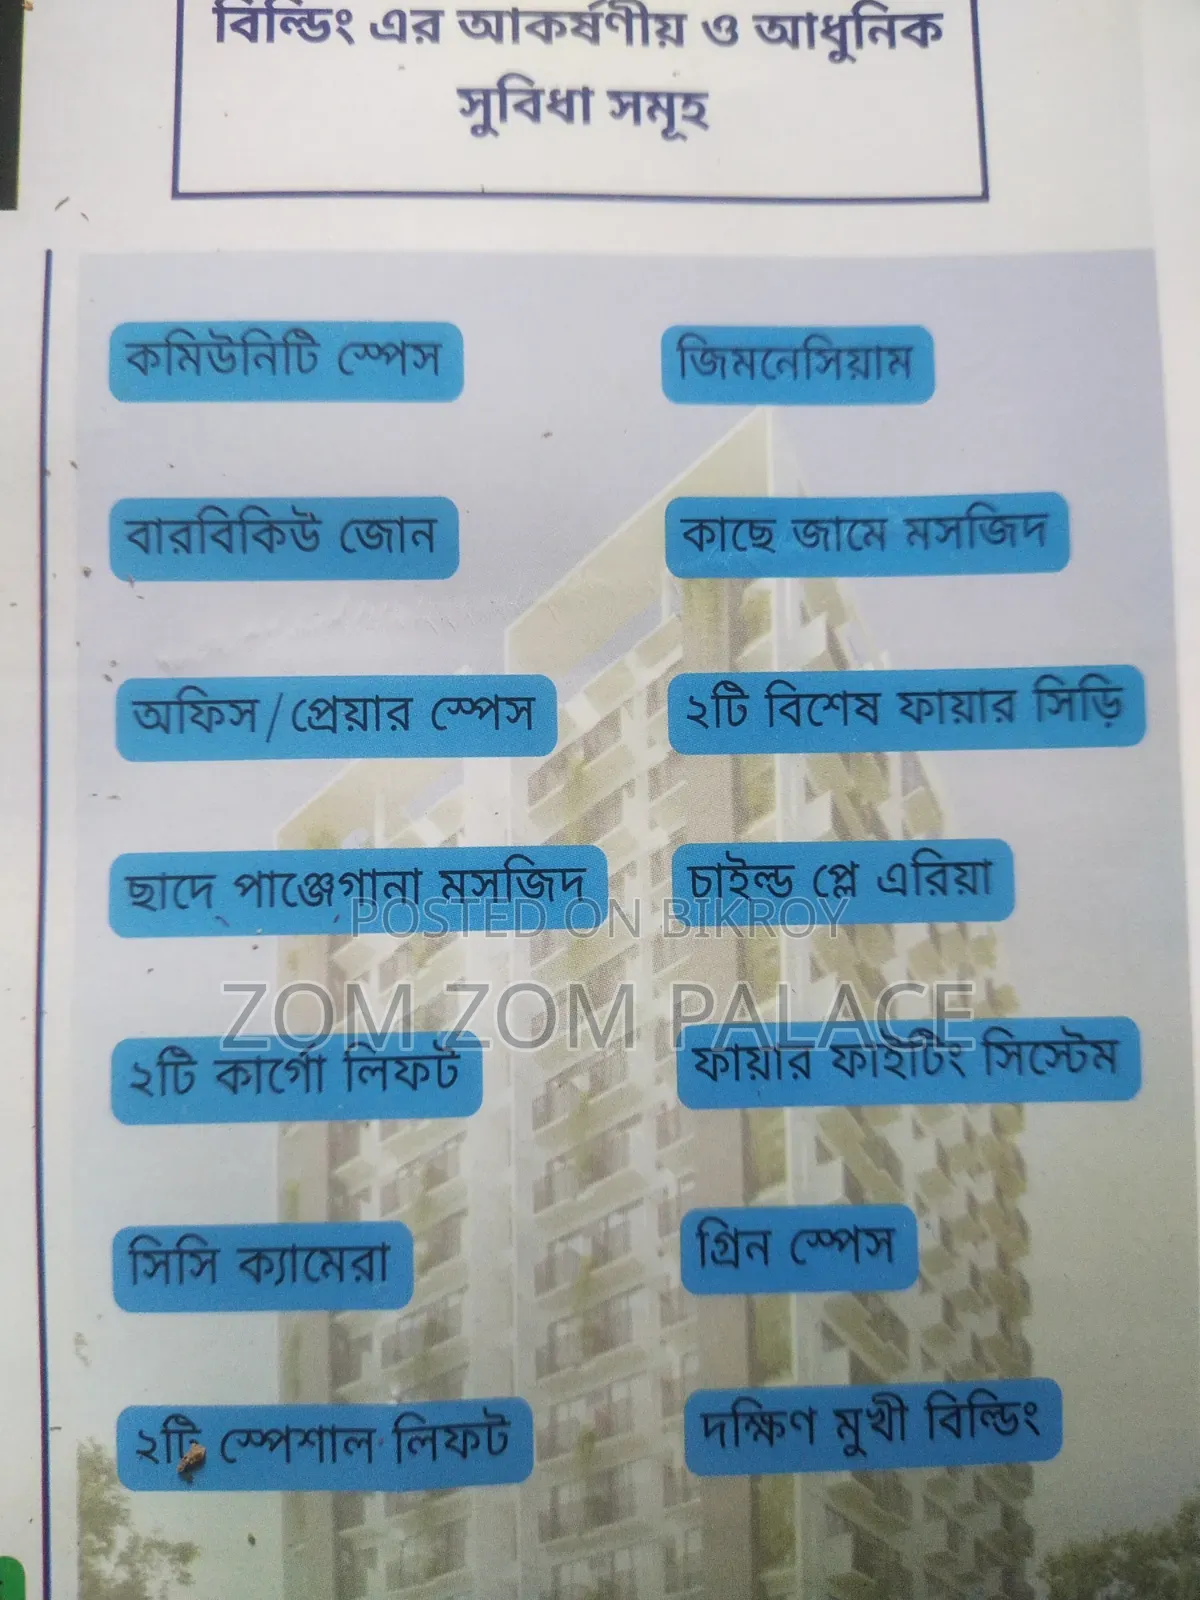 বিল্ডিং এর আকর্ষণীয় ও আধুনিক
সুবিধা সমূহ
কমিউনিটি স্পেস
জিমনেসিয়াম
বারবিকিউ জোন
কাছে জামে মসজিদ
অফিস/প্রেয়ার স্পেস
২টি বিশেষ ফায়ার সিড়ি
ছাদে পাঞ্জেগানা মসজিদ
চাইল্ড প্লে এরিয়া
POSTED ON BIKROY
ZOM ZOM PALACE
২টি কার্গো লিফট
ফায়ার ফাইটিং সিস্টেম
সিসি ক্যামেরা
গ্রিন স্পেস
২টি স্পেশাল লিফট
দক্ষিণ মুখী বিল্ডিং